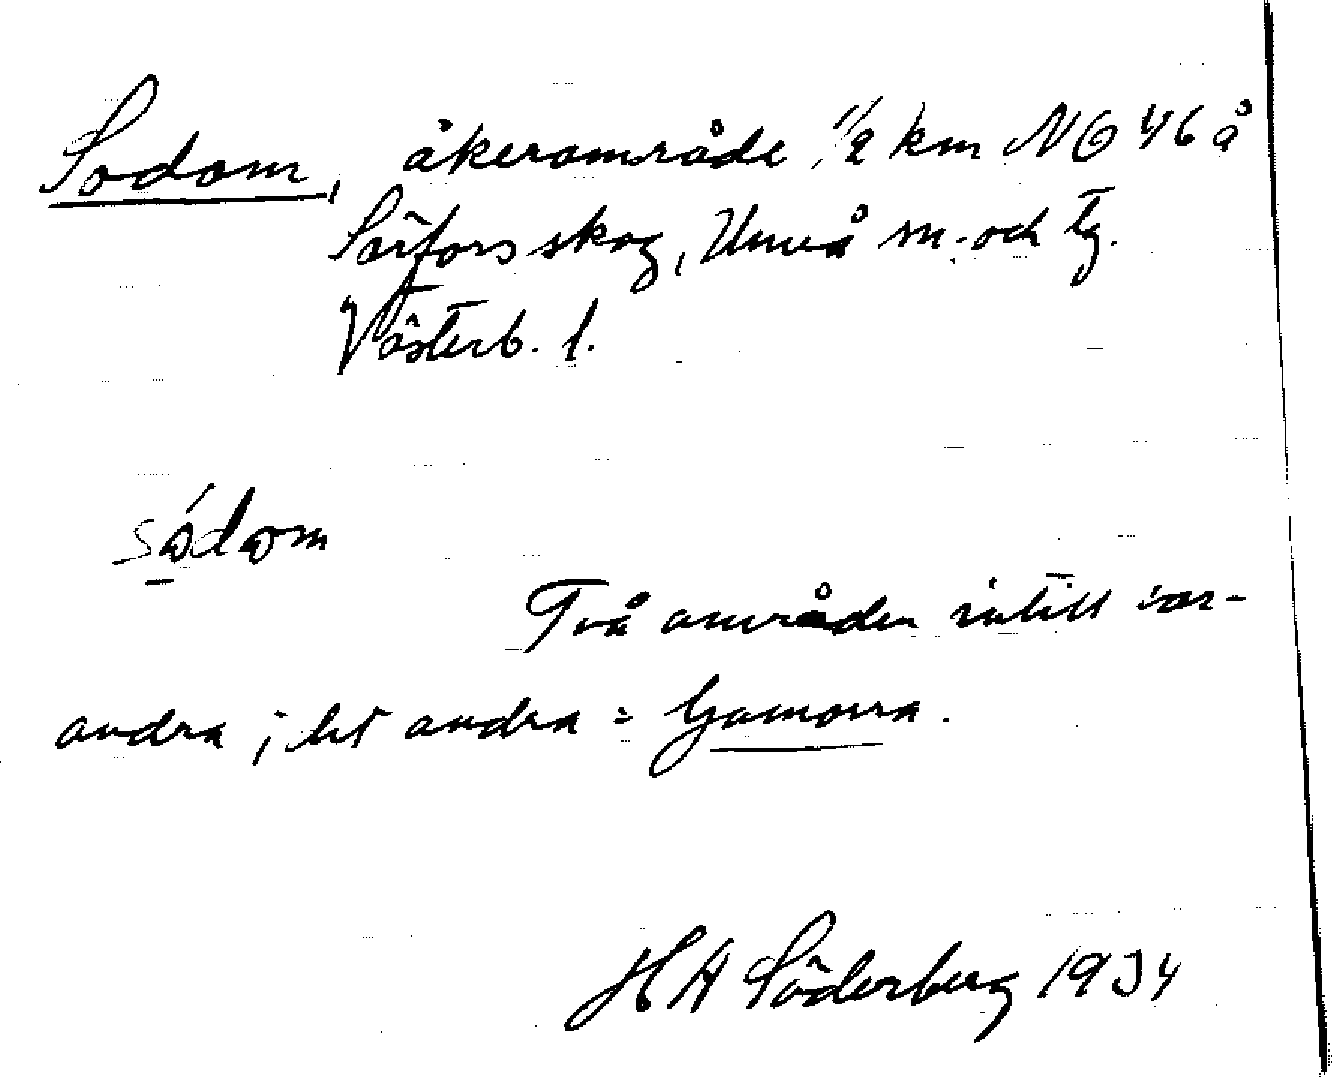 Sodom, åkerområde 1/2 km NO 46 å
Sörfors skog, Umeå sn. och tg.
Västerb. l.
sódom
Två områden intill var-
andra; det andra = Gomorra.
H A Söderberg 1934